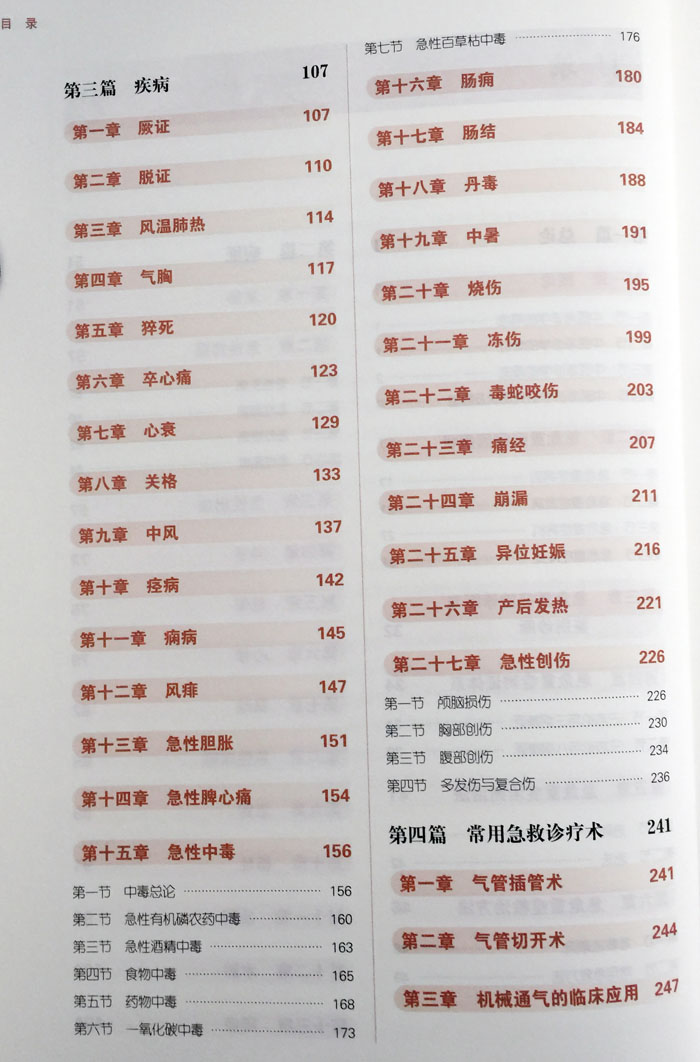 目 录
第三篇 疾病 107
第一章 厥证 107
第二章 脱证 110
第三章 风温肺热 114
第四章 气胸 117
第五章 猝死 120
第六章 卒心痛 123
第七章 心衰 129
第八章 关格 133
第九章 中风 137
第十章 痉病 142
第十一章 痫病 145
第十二章 风痱 147
第十三章 急性胆胀 151
第十四章 急性脾心痛 154
第十五章 急性中毒 156
第一节 中毒总论 156
第二节 急性有机磷农药中毒 160
第三节 急性酒精中毒 163
第四节 食物中毒 165
第五节 药物中毒 168
第六节 一氧化碳中毒 173
第七节 急性百草枯中毒 176
第十六章 肠痈 180
第十七章 肠结 184
第十八章 丹毒 188
第十九章 中暑 191
第二十章 烧伤 195
第二十一章 冻伤 199
第二十二章 毒蛇咬伤 203
第二十三章 痛经 207
第二十四章 崩漏 211
第二十五章 异位妊娠 216
第二十六章 产后发热 221
第二十七章 急性创伤 226
第一节 颅脑损伤 226
第二节 胸部创伤 230
第三节 腹部创伤 234
第四节 多发伤与复合伤 236
第四篇 常用急救诊疗术 241
第一章 气管插管术 241
第二章 气管切开术 244
第三章 机械通气的临床应用 247